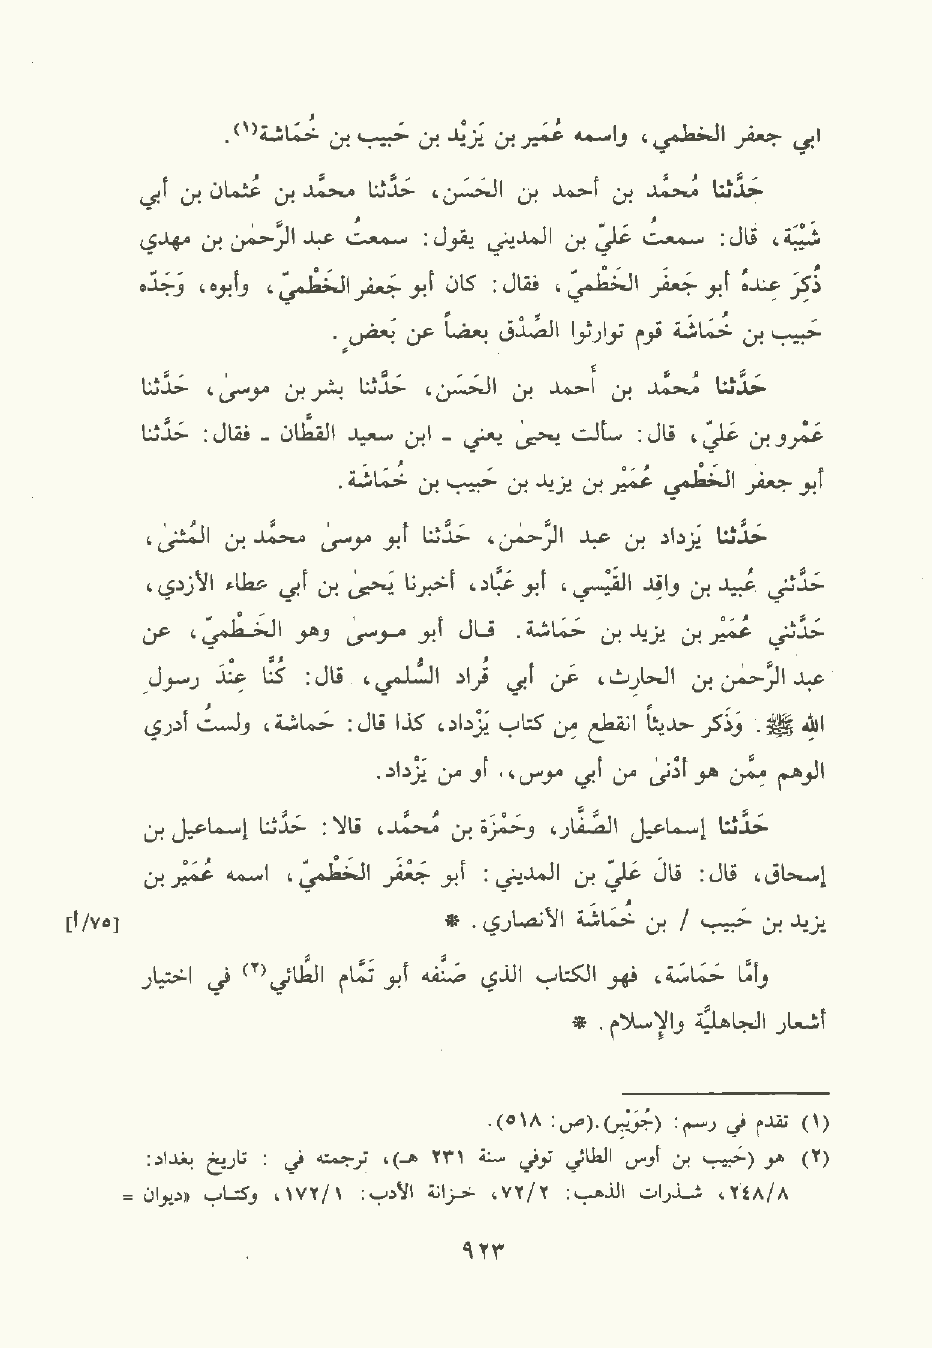 ابي جعفر الخطمي، واسمه عُمَير بن يَزِيْد بن حَبيب بن خُمَاشة(١).
حَدَّثنا مُحمَّد بن أحمد بن الحَسَن، حَدَّثنا محمَّد بن عُثمَان بن أبي
شَيْبَة، قال: سمعتُ عَليَّ بن المديني يقول: سمعتُ عبد الرَّحمٰن بن مهدي
ذُكِرَ عندهُ أبو جَعفَر الخَطْمِيَّ، فقال: كان أبو جَعْفَر الخَطْمِيَّ، وأبوه، وَجَدّه
حَبيب بن خُمَاشَة قوم توارثوا الصِّدْق بعضاً عن بَعضٍ.
حَدَّثنا مُحمَّد بن أحمد بن الحَسَن، حَدَّثنا بشر بن موسىٰ، حَدَّثنا
عَمْرو بن عَليّ، قال: سألت يحيىٰ يعني - ابن سعيد القَطَّان - فقال: حَدَّثنا
أبو جعفر الخَطْمي عُمَيْر بن يزيد بن حَبيب بن خُمَاشَة.
حَدَّثنا يَزداد بن عبد الرَّحمٰن، حَدَّثنا أبو موسىٰ محمَّد بن المُثنىٰ،
حَدَّثني عُبيد بن واقِد القَيْسي، أبو عَبَّاد، أخبرنا يَحيىٰ بن أبي عطاء الأزدي،
حَدَّثني عُمَيْر بن يزيد بن حَمَاشة. قال أبو موسىٰ وهو الخَطْمِيّ، عن
عبد الرَّحمٰن بن الحارث، عن أبي قُراد السُّلمي، قال: كُنَّا عِنْدَ رسولِ
اللهِ ﷺ. وَذَكر حديثاً انقطع مِن كتاب يَزْداد، كذا قال: حَماشة، ولستُ أدري
الوهم مِمَّن هو أدْنىٰ من أبي موسىٰ، أو من يَزْداد.
حَدَّثنا إسماعيل الصَّفَّار، وحَمْزَة بن مُحمَّد، قالا: حَدَّثنا إسماعيل بن
إسحاق، قال: قالَ عَليّ بن المديني: أبو جَعْفَر الخَطْمِيَّ، اسمه عُمَيْر بن
يزيد بن حَبيب / بن خُمَاشَة الأنصاري. * [٧٥/أ]
وأمَّا حَمَاسَة، فهو الكتاب الذي صَنَّفه أبو تَمَّام الطَّائي(٢) في اختيار
أشعار الجاهليَّة والإِسلام. *
(١) تقدم في رسم: (جُوَيْبِر). (ص: ٥١٨).
(٢) هو (حَبيب بن أوس الطائي توفي سنة ٢٣١ هـ)، ترجمته في : تاريخ بغداد:
٢٤٨/٨، شذرات الذهب: ٧٢/٢، خزانة الأدب: ١٧٢/١، وكتاب «ديوان =
٩٢٣